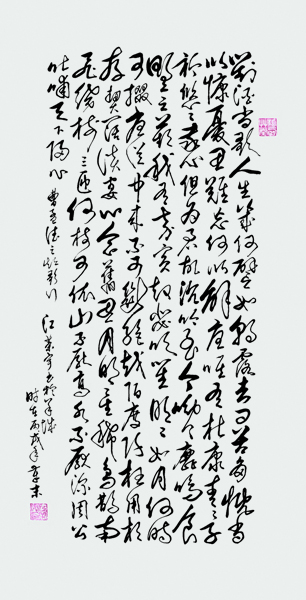 對酒當歌人生幾何譬如朝露去日苦多慨當
以慷憂思難忘何以解憂唯有杜康青青子
衿悠悠我心但為君故沉吟至今呦呦鹿鳴食
野之苹我有嘉賓鼓瑟吹笙明明如月何時
可掇憂從中來不可斷絕越陌度阡枉用相
存契闊談宴心念舊恩月明星稀烏鵲南
飛繞樹三匝何枝可依山不厭高水不厭深周公
吐哺天下歸心 曹孟德之短歌行 書於羊城
時在丙戌年